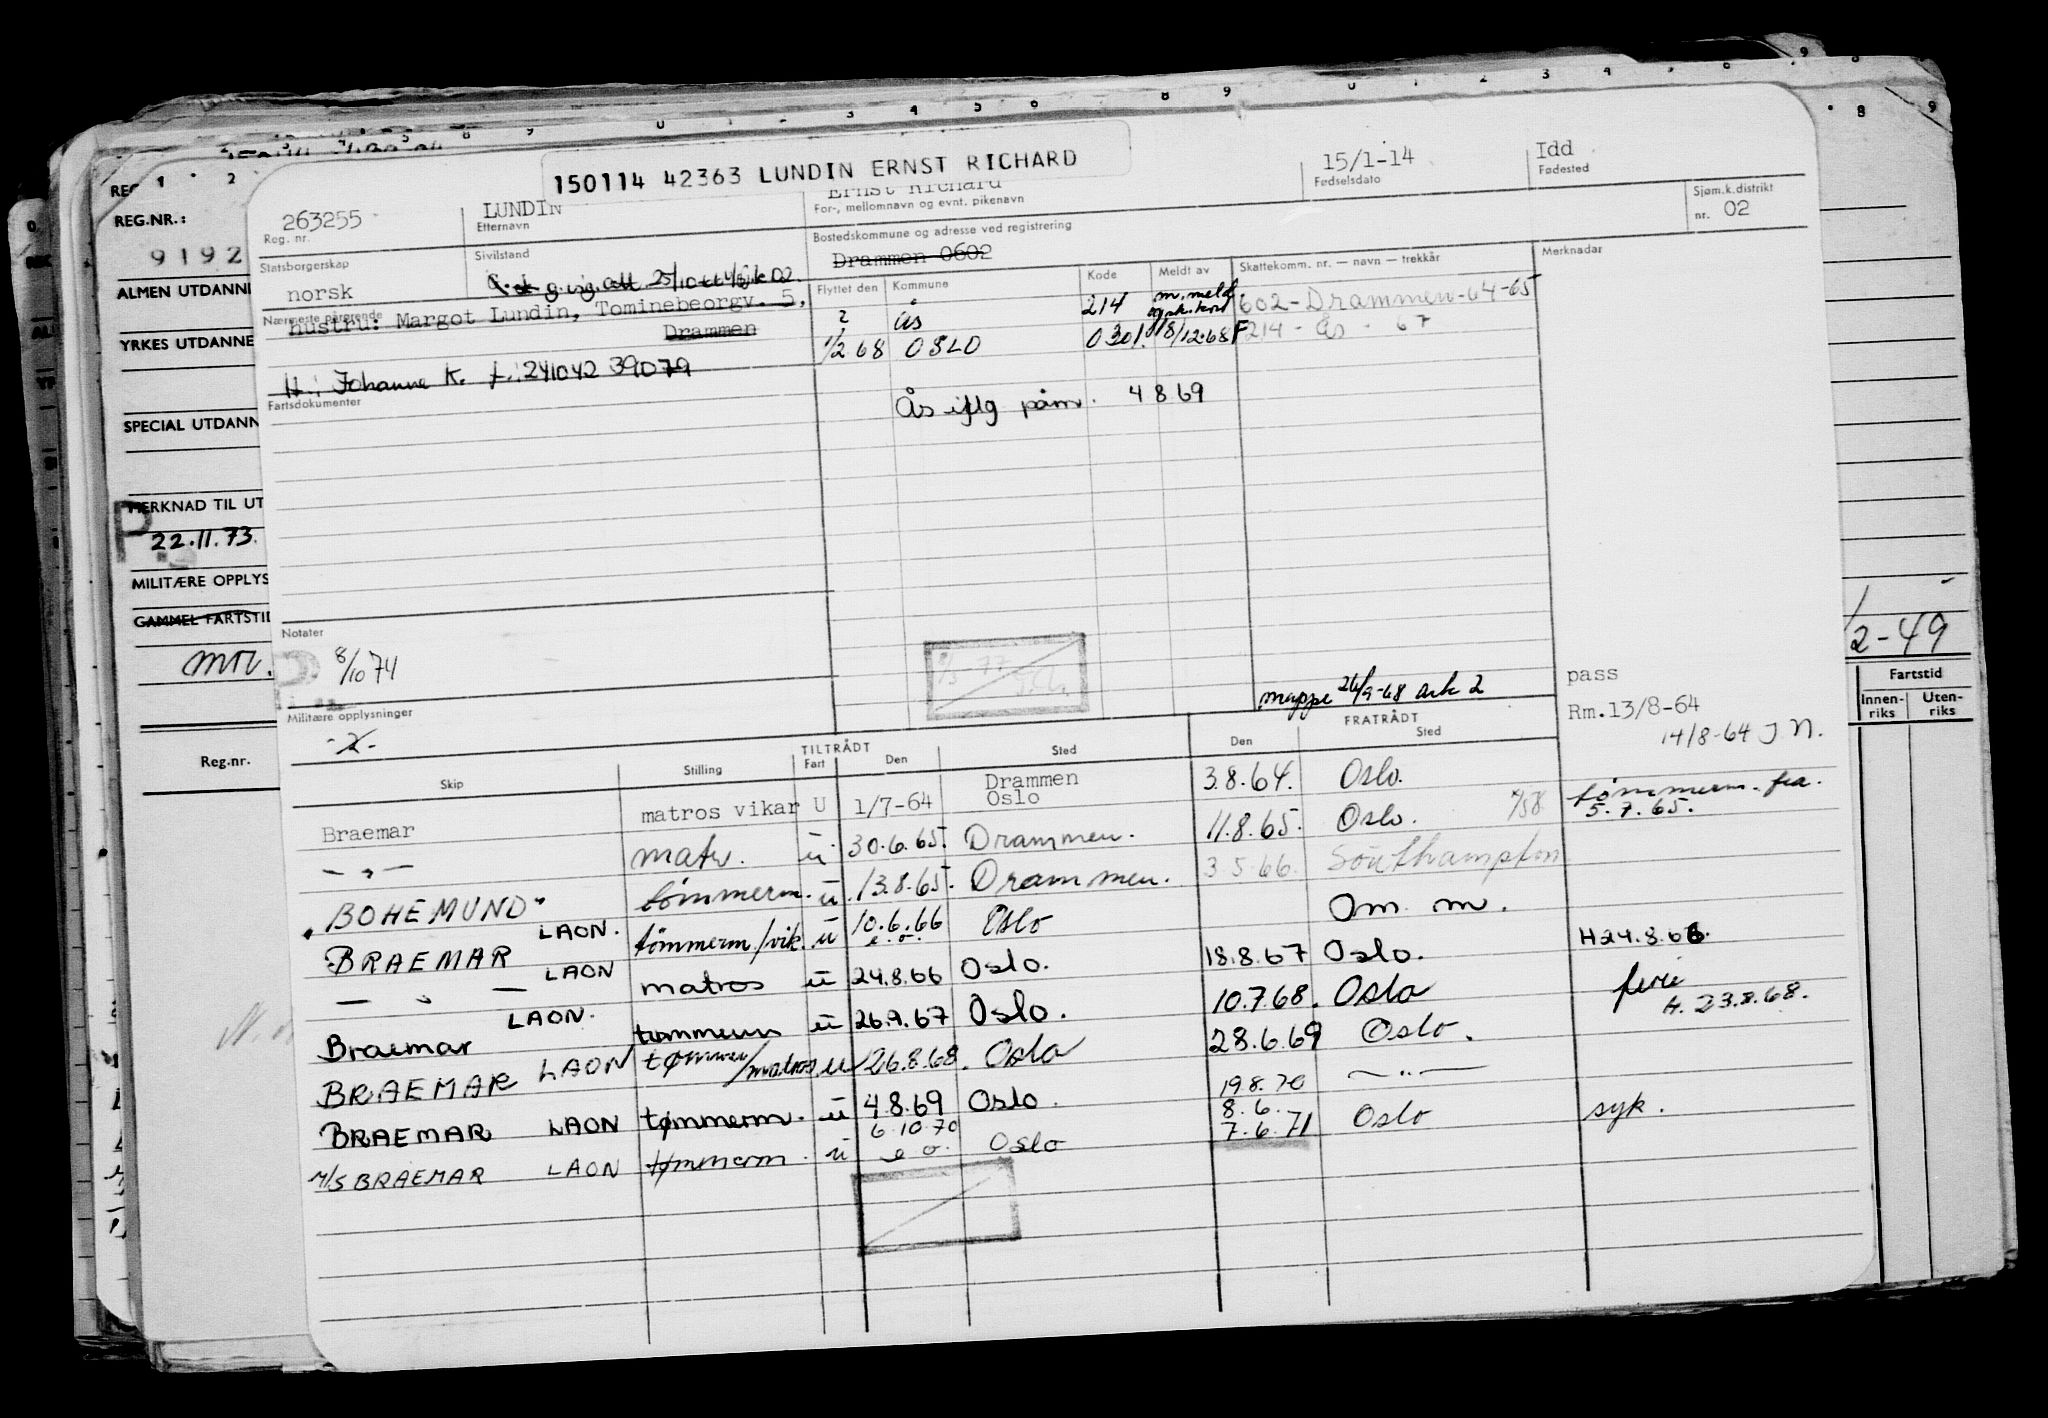 150114 42363 LUNDIN ERNST RICHARD
263255
Reg. nr.
LUNDIN
Etternavn
Ernst Richard
For-, mellomnavn og evnt. pikenavn
15/1-14
Fødselsdato
Idd
Fødested
Statsborgerskap
norsk
Sivilstand
Bostedskommune og adresse ved registrering
Drammen 0602
Sjøm.k.distrikt
nr. 02
Nærmeste pårørende
hustru: Margot Lundin, Tominebeorgv. 5,
Drammen
H.: Johanne K. f.: 241042 39079
Flyttet den
Kommune
Kode
Meldt av
Skattekomm. nr. — navn — trekkår
Merknader
? Ås 214 m. meld 602-Drammen-64-65
1/2 68 OSLO 0301 18/12-68 F 214 - Ås - 67
Ås iflg påm. 4 8 69
Fartsdokumenter
Notater
8/10 74
Militære opplysninger
-2-
mappe 26/9-68 ark 2
pass
Rm.13/8-64
14/8-64 J N.
TILTRÅDT
FRATRÅDT
Skip Stilling Fart Den Sted Den Sted
Braemar matros vikar U 1/7-64 Drammen Oslo 3.8.64. Oslo.
-"- matr. u 30.6.65. Drammen. 11.8.65. Oslo. tømmerm. fra. 5.7.65.
BOHEMUND tømmerm. u 13.8.65. Drammen. 3.5.66. Southampton
BRAEMAR LAON. tømmerm./vik. u 10.6.66 e.o. Oslo Om. m.
— " — LAON matros u 24.8.66 Oslo. 18.8.67 Oslo. H 24.8.66.
Braemar LAON. tømmerm u 26.9.67 Oslo. 10.7.68. Oslo ferie H. 23.8.68.
BRAEMAR LAON tømmer/matros u 26.8.68. Oslo 28.6.69 Oslo.
BRAEMAR LAON tømmerm. u 4.8.69 Oslo. 19.8.70 — " —
M/S BRAEMAR LAON tømmerm. u 6.10.70 e o. Oslo 8.6. 7.6.71 Oslo syk.
REG.NR.:
9192
ALMEN UTDANNE
YRKES UTDANNE
SPECIAL UTDANN
MERKNAD TIL UT
P.
22.11.73.
MILITÆRE OPPLYS
GAMMEL FARTSTID
Reg.nr.
2-49
Fartstid
Innen-riks
Uten-riks